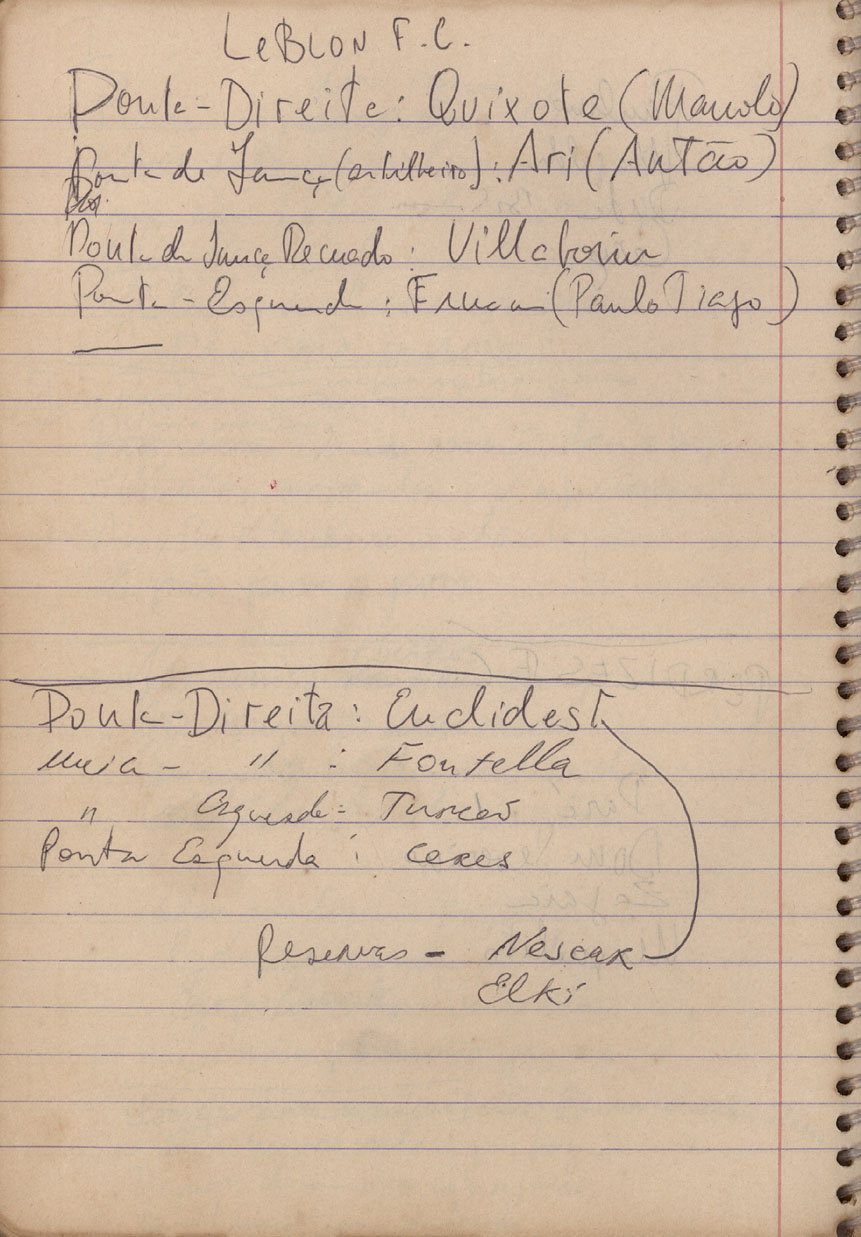 LEBLON F.C.
Ponta-Direita: Quixote (Manolo)
Ponta de Lança (artilheiro): Ari (Antão)
Ponta de Lança Recuado: Villaborim
Ponta-Esquerda: (Paulo Tiago)
Ponta-Direita: Euclides
Meia - " : Fontella
" Esquerda = Turcão
Ponta Esquerda: Ceres
Reservas - Nescax
Elki